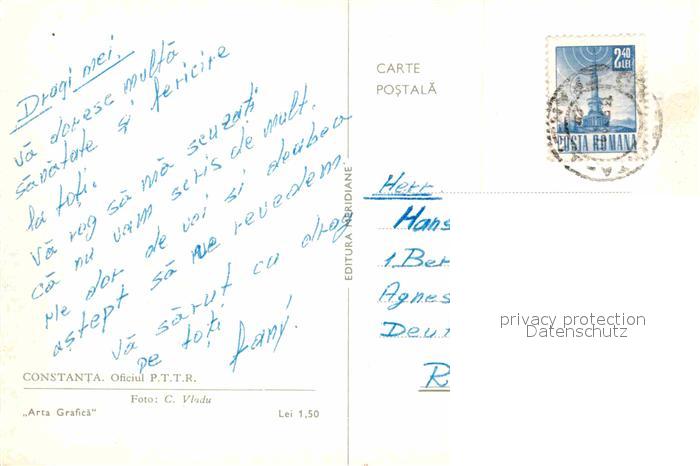 Dragi mei,
Vă doresc multă
sănătate și fericire
la toți.
Vă rog să mă scuzați
că nu v-am scris de mult.
Me dor de voi și deabea
aștept să ne revedem.
Vă sărut cu drag
pe toți
fany.
CONSTANȚA. Oficiul P.T.T.R.
Foto: C. Vladu
„Arta Grafică"
Lei 1,50
EDITURA MERIDIANE
CARTE
POȘTALĂ
2,40
LEI
POSTA ROMANA
Herr
Hans
1 Ber
Agnes
Deu
R
privacy protection
Datenschutz